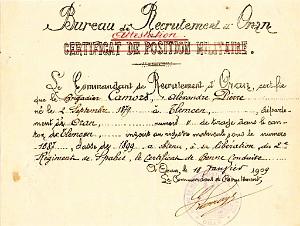 Bureau de Recrutement d'Oran
Attestation
CERTIFICAT DE POSITION MILITAIRE.
Le Commandant de Recrutement d'Oran, certifie
que le Brigadier Camors, Alexandre Pierre
né le 2 Septembre 1879 à Tlemcen, départe-
ment de Oran, numéro de tirage dans le can-
ton de Tlemcen, inscrit au registre matricule sous le numéro
1087 classe de 1899, a obtenu, à sa libération du 2e
Régiment de Spahis, le Certificat de Bonne Conduite.
À Oran, le 18 Janvier 1909
Le Commandant de Recrutement,